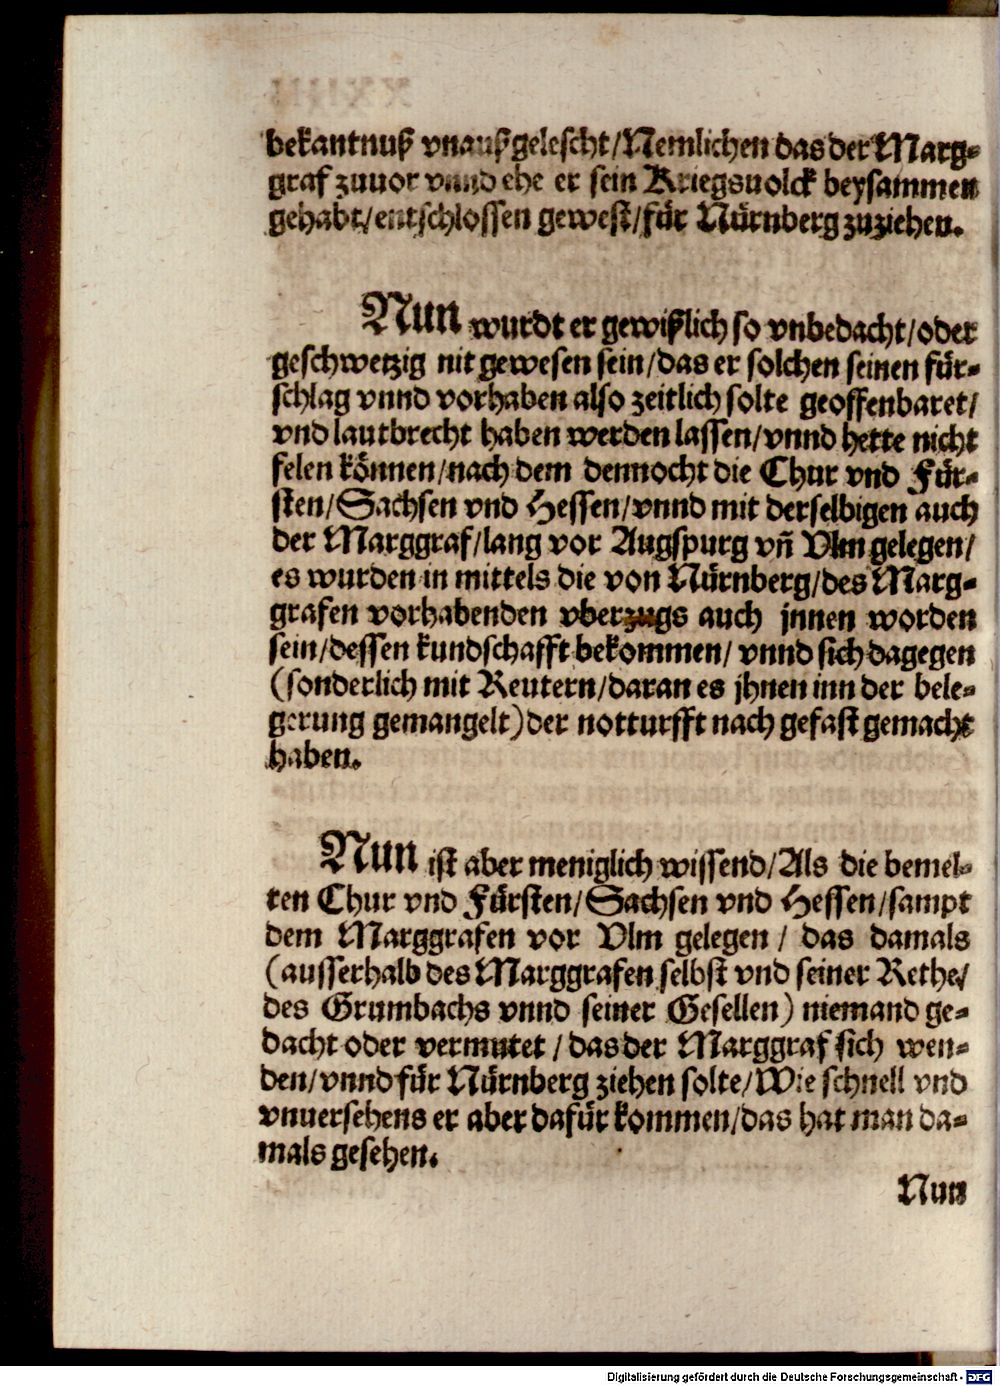 bekantnuß vnaußgelescht/Nemlichen das der Marg-
graf zuuor vnnd ehe er sein Kriegsuolck beysammen
gehabt/entschlossen gewest/für Nürnberg zuziehen.
Nun wurdt er gewißlich so vnbedacht/oder
geschwetzig nit gewesen sein/das er solchen seinen für-
schlag vnnd vorhaben also zeitlich solte geoffenbaret/
vnd lautbrecht haben werden lassen/vnnd hette nicht
felen können/nach dem dennocht die Chur vnd Für-
sten/Sachsen vnd Hessen/vnnd mit derselbigen auch
der Marggraf/lang vor Augspurg vñ Vlm gelegen/
es wurden in mittels die von Nürnberg/des Marg-
grafen vorhabenden vberzugs auch jnnen worden
sein/dessen kundschafft bekommen/ vnnd sich dagegen
(sonderlich mit Reutern/daran es jhnen inn der bele-
gerung gemangelt)der notturfft nach gefast gemacht
haben.
Nun ist aber meniglich wissend/Als die bemel-
ten Chur vnd Fürsten/Sachsen vnd Hessen/sampt
dem Marggrafen vor Vlm gelegen / das damals
(ausserhalb des Marggrafen selbst vnd seiner Rethe/
des Grumbachs vnnd seiner Gesellen) niemand ge-
dacht oder vermutet / das der Marggraf sich wen-
den/vnnd für Nürnberg ziehen solte/Wie schnell vnd
vnuersehens er aber dafür kommen/das hat man da-
mals gesehen.
Nun
Digitalisierung gefördert durch die Deutsche Forschungsgemeinschaft - DFG